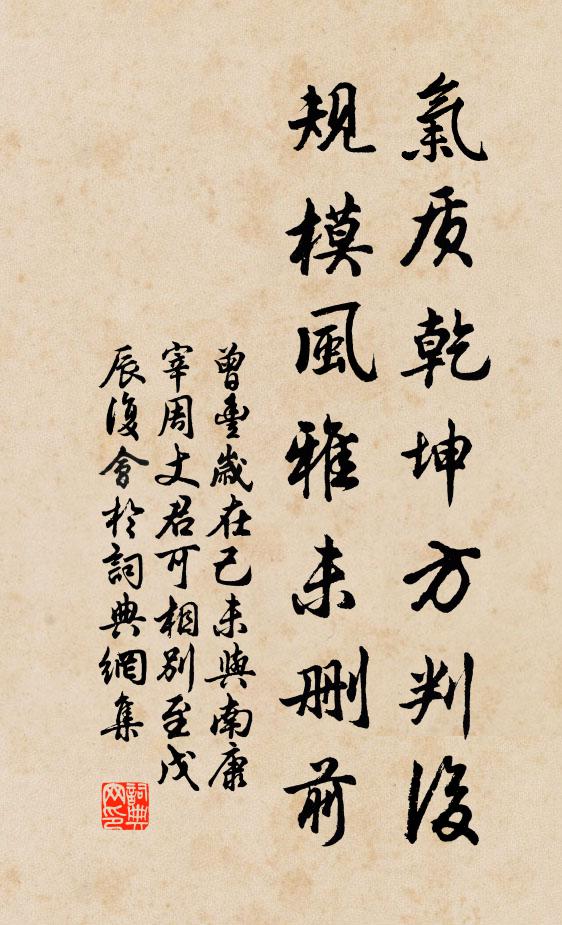 氣质乾坤方判後
規模風雅未刪前
曾豊歲在己未與南康
宰周丈君可相別至戊
辰復會於詞典網集
詞典网印